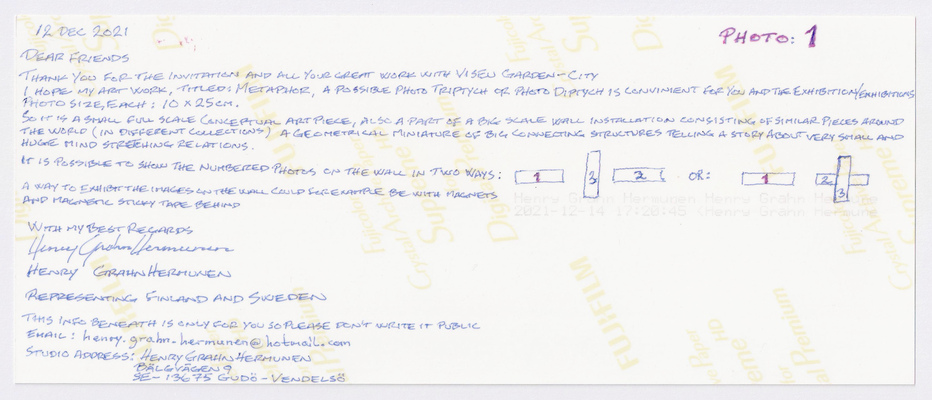 12 DEC 2021
PHOTO: 1
DEAR FRIENDS
THANK YOU FOR THE INVITATION AND ALL YOUR GREAT WORK WITH VISEU GARDEN-CITY
I HOPE MY ART WORK, TITLED: METAPHOR, A POSSIBLE PHOTO TRIPTYCH OR PHOTO DIPTYCH IS CONVINIENT FOR YOU AND THE EXHIBITION/EXHIBITIONS
PHOTO SIZE, EACH: 10 X 25 CM.
SO IT IS A SMALL FULL SCALE CONCEPTUAL ART PIECE, ALSO A PART OF A BIG SCALE WALL INSTALLATION CONSISTING OF SIMILAR PIECES AROUND
THE WORLD (IN DIFFERENT COLLECTIONS) A GEOMETRICAL MINIATURE OF BIG CONNECTING STRUCTURES TELLING A STORY ABOUT VERY SMALL AND
HUGE MIND STRECHING RELATIONS.
IT IS POSSIBLE TO SHOW THE NUMBERED PHOTOS ON THE WALL IN TWO WAYS: 1 3 2 OR: 1 2 3
A WAY TO EXHIBIT THE IMAGES ON THE WALL COULD FOR EXAMPLE BE WITH MAGNETS
AND MAGNETIC STICKY TAPE BEHIND
Henry Grahn Hermunen Henry Grahn Hermune
2021-12-14 17:20:45 (Henry Grahn Hermune
WITH MY BEST REGARDS
Henry Grahn Hermunen
HENRY GRAHN HERMUNEN
REPRESENTING FINLAND AND SWEDEN
THIS INFO BENEATH IS ONLY FOR YOU SO PLEASE DON'T WRITE IT PUBLIC
EMAIL: henry.grahn-hermunen@hotmail.com
STUDIO ADDRESS: HENRY GRAHN HERMUNEN
BÄLGVÄGEN 9
SE-13675 GUDÖ-VENDELSÖ
FUJIFILM
FUJIFILM